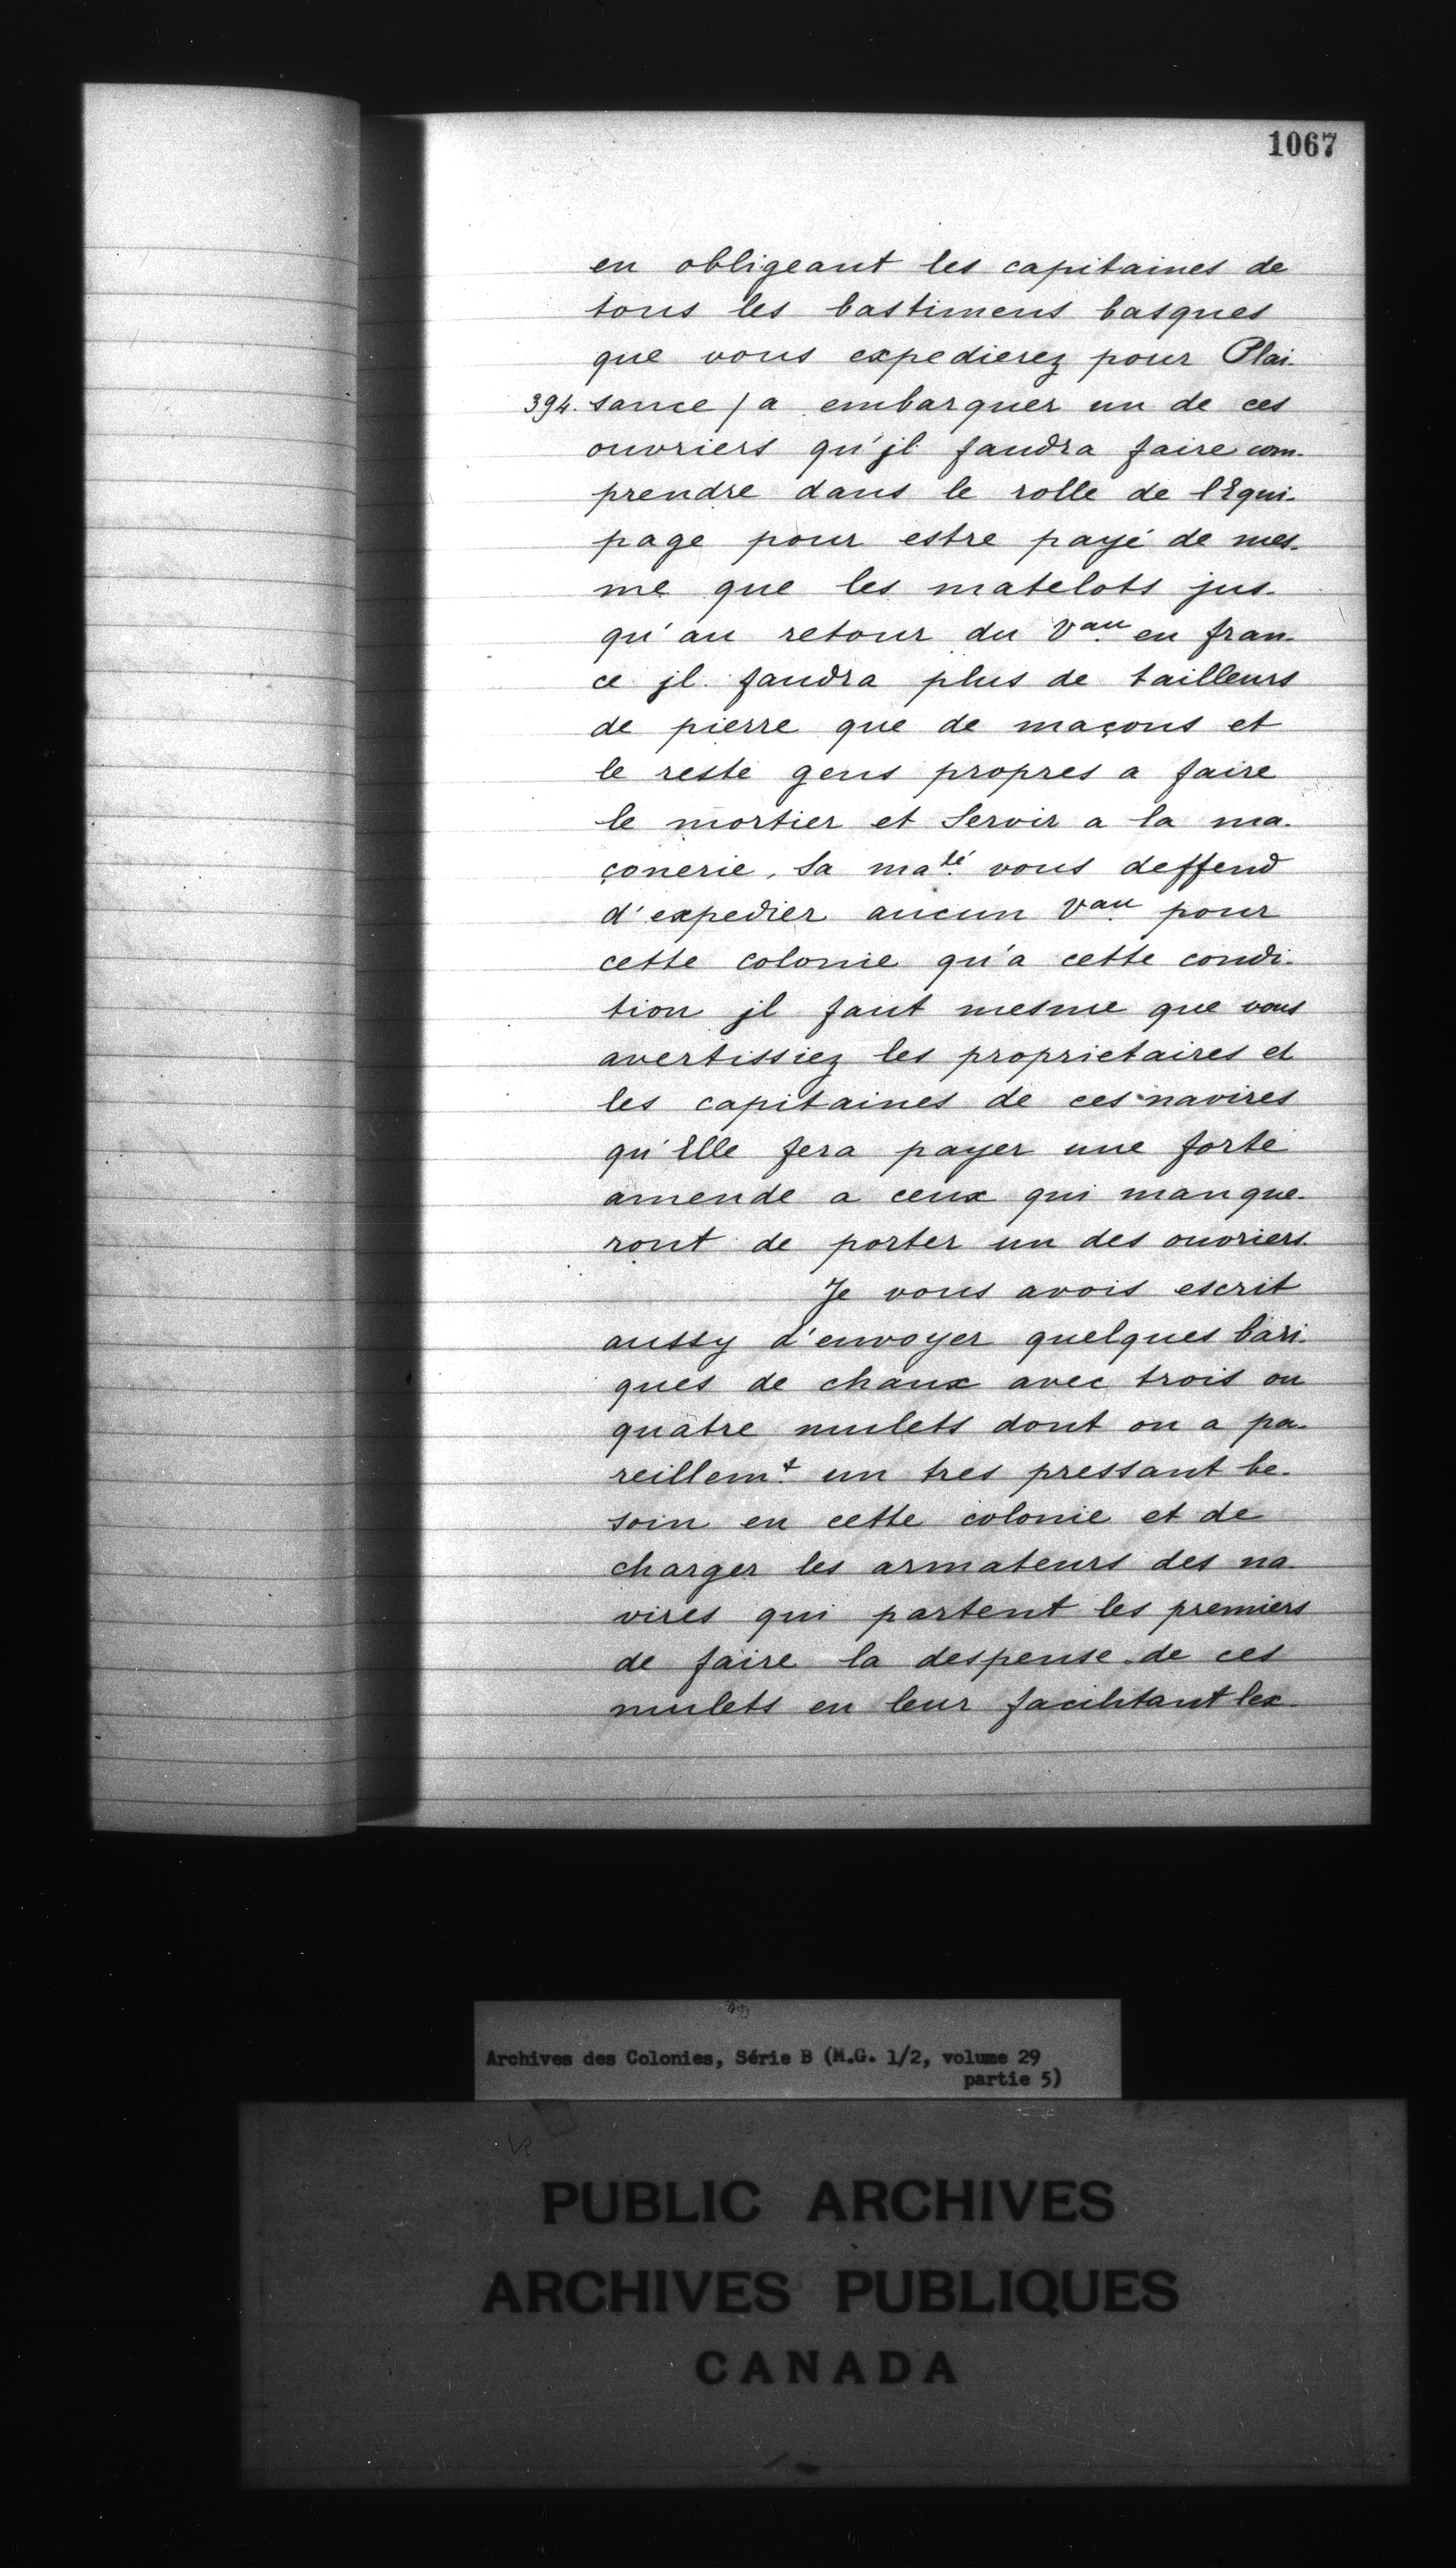 1067
en obligeant les capitaines de
tous les bastimens basques
que vous expedierez pour Plai-
394. sance / a embarquer un de ces
ouvriers qu'jl faudra faire com-
prendre dans le rolle de l'Equi-
page pour estre payé de mes-
me que les matelots jus-
qu'au retour du Vau en fran-
ce jl faudra plus de tailleurs
de pierre que de maçons et
le reste gens propres a faire
le mortier et Servir a la ma-
çonerie, Sa maté vous deffend
d'expedier aucun Vau pour
cette colonie qu'a cette condi-
tion jl faut mesme que vous
avertissiez les proprietaires et
les capitaines de ces navires
qu'Elle fera payer une forte
amende a ceux qui manque-
ront de porter un des ouvriers.
Je vous avois escrit
aussy d'envoyer quelques bari-
ques de chaux avec trois ou
quatre mulets dont on a pa-
reillemt un tres pressant be-
soin en cette colonie et de
charger les armateurs des na-
vires qui partent les premiers
de faire la despense de ces
mulets en leur facilitant lex-
Archives des Colonies, Série B (M.G. 1/2, volume 29
partie 5)
PUBLIC ARCHIVES
ARCHIVES PUBLIQUES
CANADA